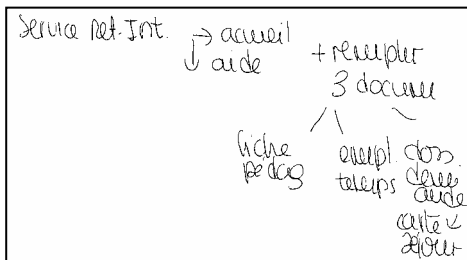 Service Rel. Int. → accueil
↓ aide
+ remplir
3 docum
fiche
pédag
empl.
temps
doss.
dem
aide
carte
séjour